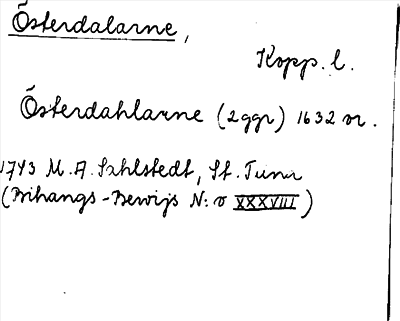 Österdalarne,
Kopp. l.
Österdahlarne (2 ggr) 1632 or.
1743 M. A. Sahlstedt, St. Tuna
(Bihangs-Bewijs N:o XXXVIII)